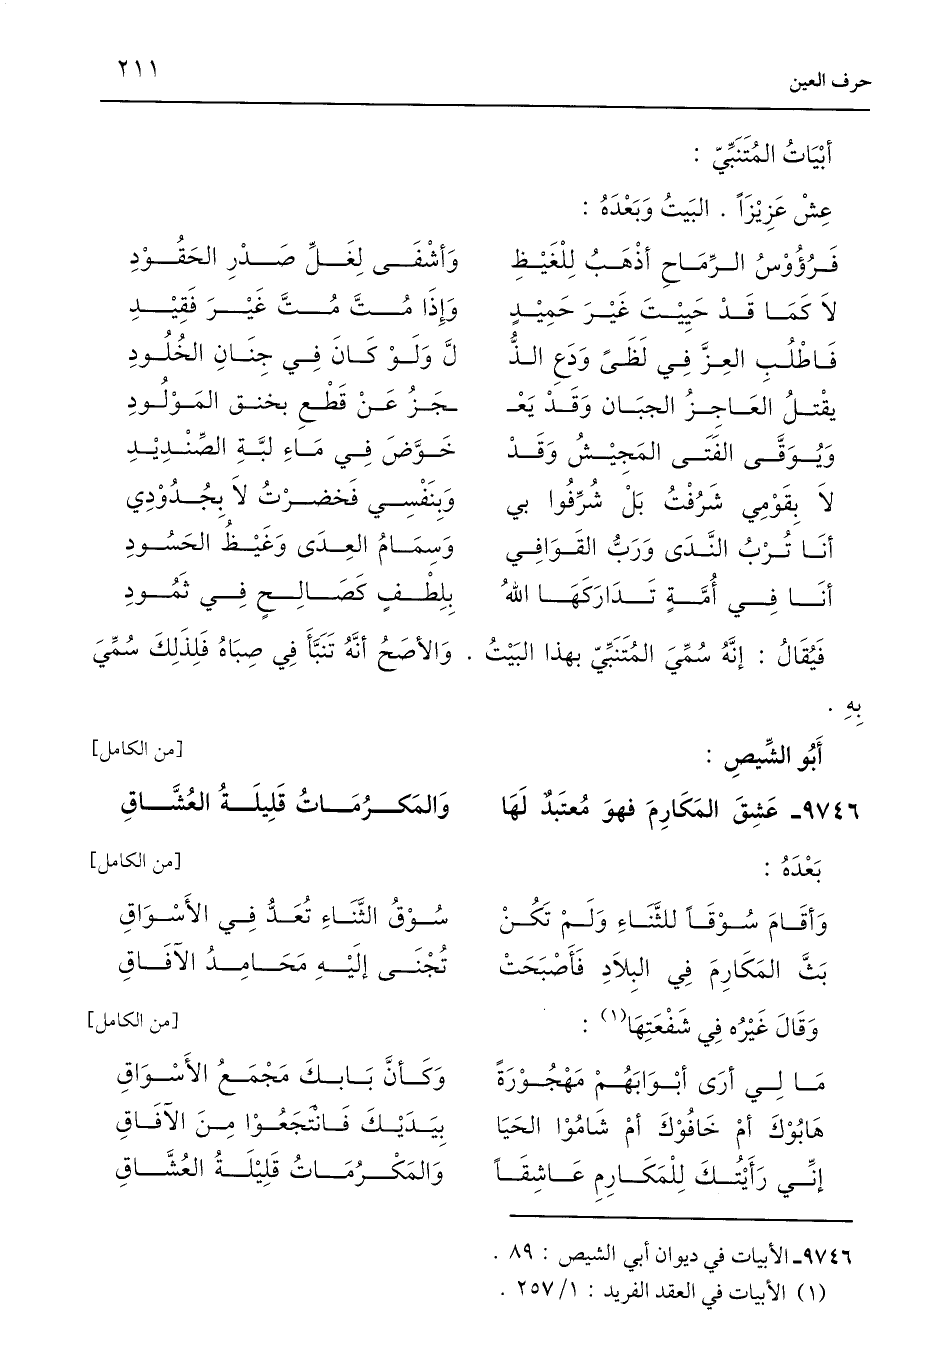 حرف العين ٢١١
أَبْيَاتُ المُتَنَبِّيّ :
عِشْ عَزِيْزَاً . البَيتُ وَبَعْدَهُ :
فَرُؤُوْسُ الرِّمَاحِ أَذْهَبُ لِلْغَيْظِ وَأَشْفَى لِغَلِّ صَدْرِ الحَقُوْدِ
لاَ كَمَا قَدْ حَيِيْتَ غَيْرَ حَمِيْدٍ وَإِذَا مُتَّ مُتَّ غَيْرَ فَقِيْدِ
فَاطْلُبِ العِزَّ فِي لَظَىً وَدَعِ الذُّ لَّ وَلَوْ كَانَ فِي جِنَانِ الخُلُودِ
يقْتلُ العَاجِزُ الجَبَان وَقَدْ يَعْـ ـجَزُ عَنْ قَطْعِ بخنقِ المَوْلُودِ
وَيُوَقَّى الفَتَى المَخِيْشُ وَقَدْ خَوَّضَ فِي مَاءِ لَبَّةِ الصِّنْدِيْدِ
لاَ بِقَوْمِي شَرُفْتُ بَلْ شَرُفُوا بِي وَبِنَفْسِي فَخَضِرْتُ لاَ بِجُدُوْدِي
أَنَا تُرْبُ النَّدَى وَرَبُّ القَوَافِي وَسِمَامُ العِدَى وَغَيْظُ الحَسُودِ
أَنَا فِي أُمَّةٍ تَدَارَكَهَا اللهُ بِلُطْفٍ كَصَالِحٍ فِي ثَمُودِ
فَيُقَالُ : إِنَّهُ سُمِّيَ المُتَنَبِّيّ بِهذا البَيْتُ . وَالأَصَحُّ أَنَّهُ تَنَبَّأَ فِي صِبَاهُ فَلِذَلِكَ سُمِّيَ
بِهِ .
أَبُو الشِّيصِ : [من الكامل]
٩٧٤٦ـ عَشِقَ المَكَارِمَ فهوَ مُعتَبدٌ لَهَا وَالمَكْرُمَاتُ قَلِيلَةُ العُشَّاقِ
بَعْدَهُ : [من الكامل]
وَأَقَامَ سُوْقَاً لِلثَّنَاءِ وَلَمْ تَكُنْ سُوْقُ الثَّنَاءِ تُعَدُّ فِي الأَسْوَاقِ
بَثَّ المَكَارِمَ فِي البِلاَدِ فَأَصْبَحَتْ تُجْنَى إِلَيْهِ مَحَامِدُ الآفَاقِ
وَقَالَ غَيْرُه فِي شَفْعَتِهَا(١) : [من الكامل]
مَا لِي أَرَى أَبْوَابَهُمْ مَهْجُوْرَةً وَكَأَنَّ بَابِكَ مَجْمَعُ الأَسْوَاقِ
هَابُوْكَ أَمْ خَافُوْكَ أَمْ شَامُوْا الحَيَا بِيَدَيْكَ فَانْتَجَعُوْا مِنَ الآفَاقِ
إِنِّي رَأَيْتُكَ لِلْمَكَارِمِ عَاشِقَاً وَالمَكْرُمَاتُ قَلِيْلَةُ العُشَّاقِ
٩٧٤٦ـ الأبيات في ديوان أبي الشيص : ٨٩ .
(١) الأبيات في العقد الفريد : ١/ ٢٥٧ .